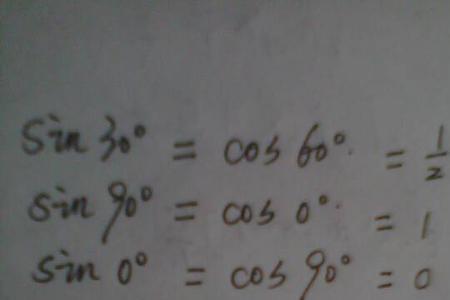 sin 30° = cos 60° = 1/2
sin 90° = cos 0° = 1
sin 0° = cos 90° = 0